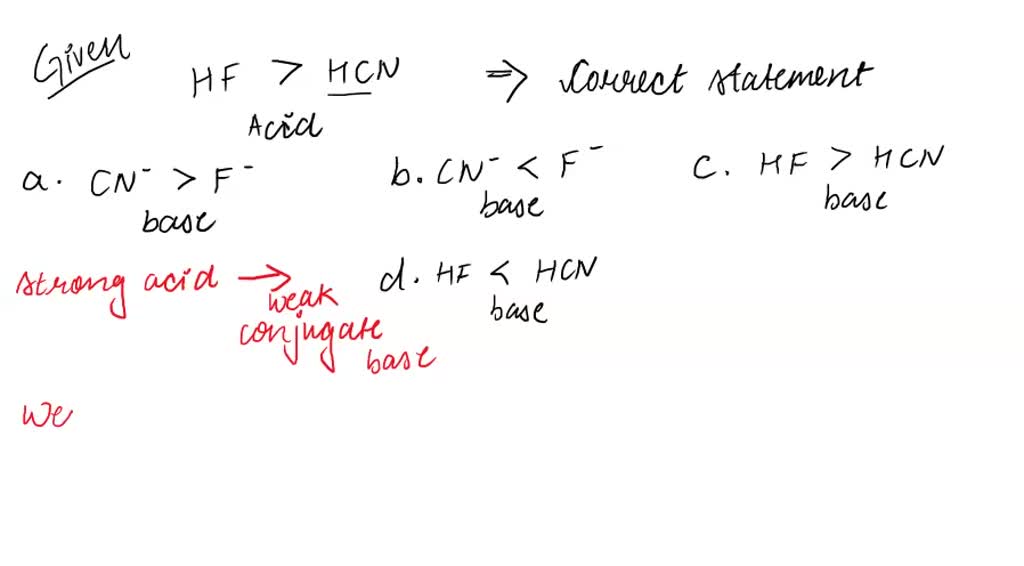 Given
HF > HCN ⇒ Correct statement
Acid
a. CN⁻ > F⁻ b. CN⁻ < F⁻ c. HF > HCN
base base base
strong acid → weak conjugate base
d. HF < HCN
base
We